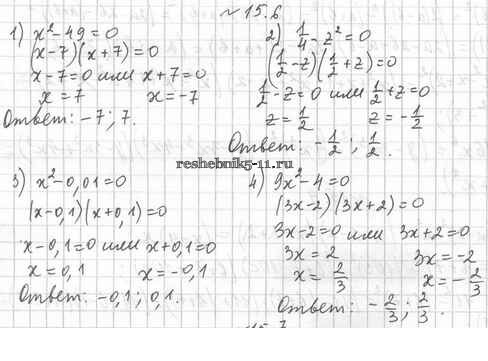 № 15.6
1) x² - 49 = 0
(x-7)(x+7) = 0
x-7=0 или x+7=0
x = 7 x = -7
Ответ: -7; 7.
2) 1/4 - z² = 0
(1/2 - z)(1/2 + z) = 0
1/2 - z = 0 или 1/2 + z = 0
z = 1/2 z = -1/2
Ответ: -1/2; 1/2.
reshebnik5-11.ru
3) x² - 0,01 = 0
(x-0,1)(x+0,1) = 0
x-0,1=0 или x+0,1=0
x = 0,1 x = -0,1
Ответ: -0,1; 0,1.
4) 9x² - 4 = 0
(3x-2)(3x+2) = 0
3x-2=0 или 3x+2=0
3x = 2 3x = -2
x = 2/3 x = -2/3
Ответ: -2/3; 2/3.